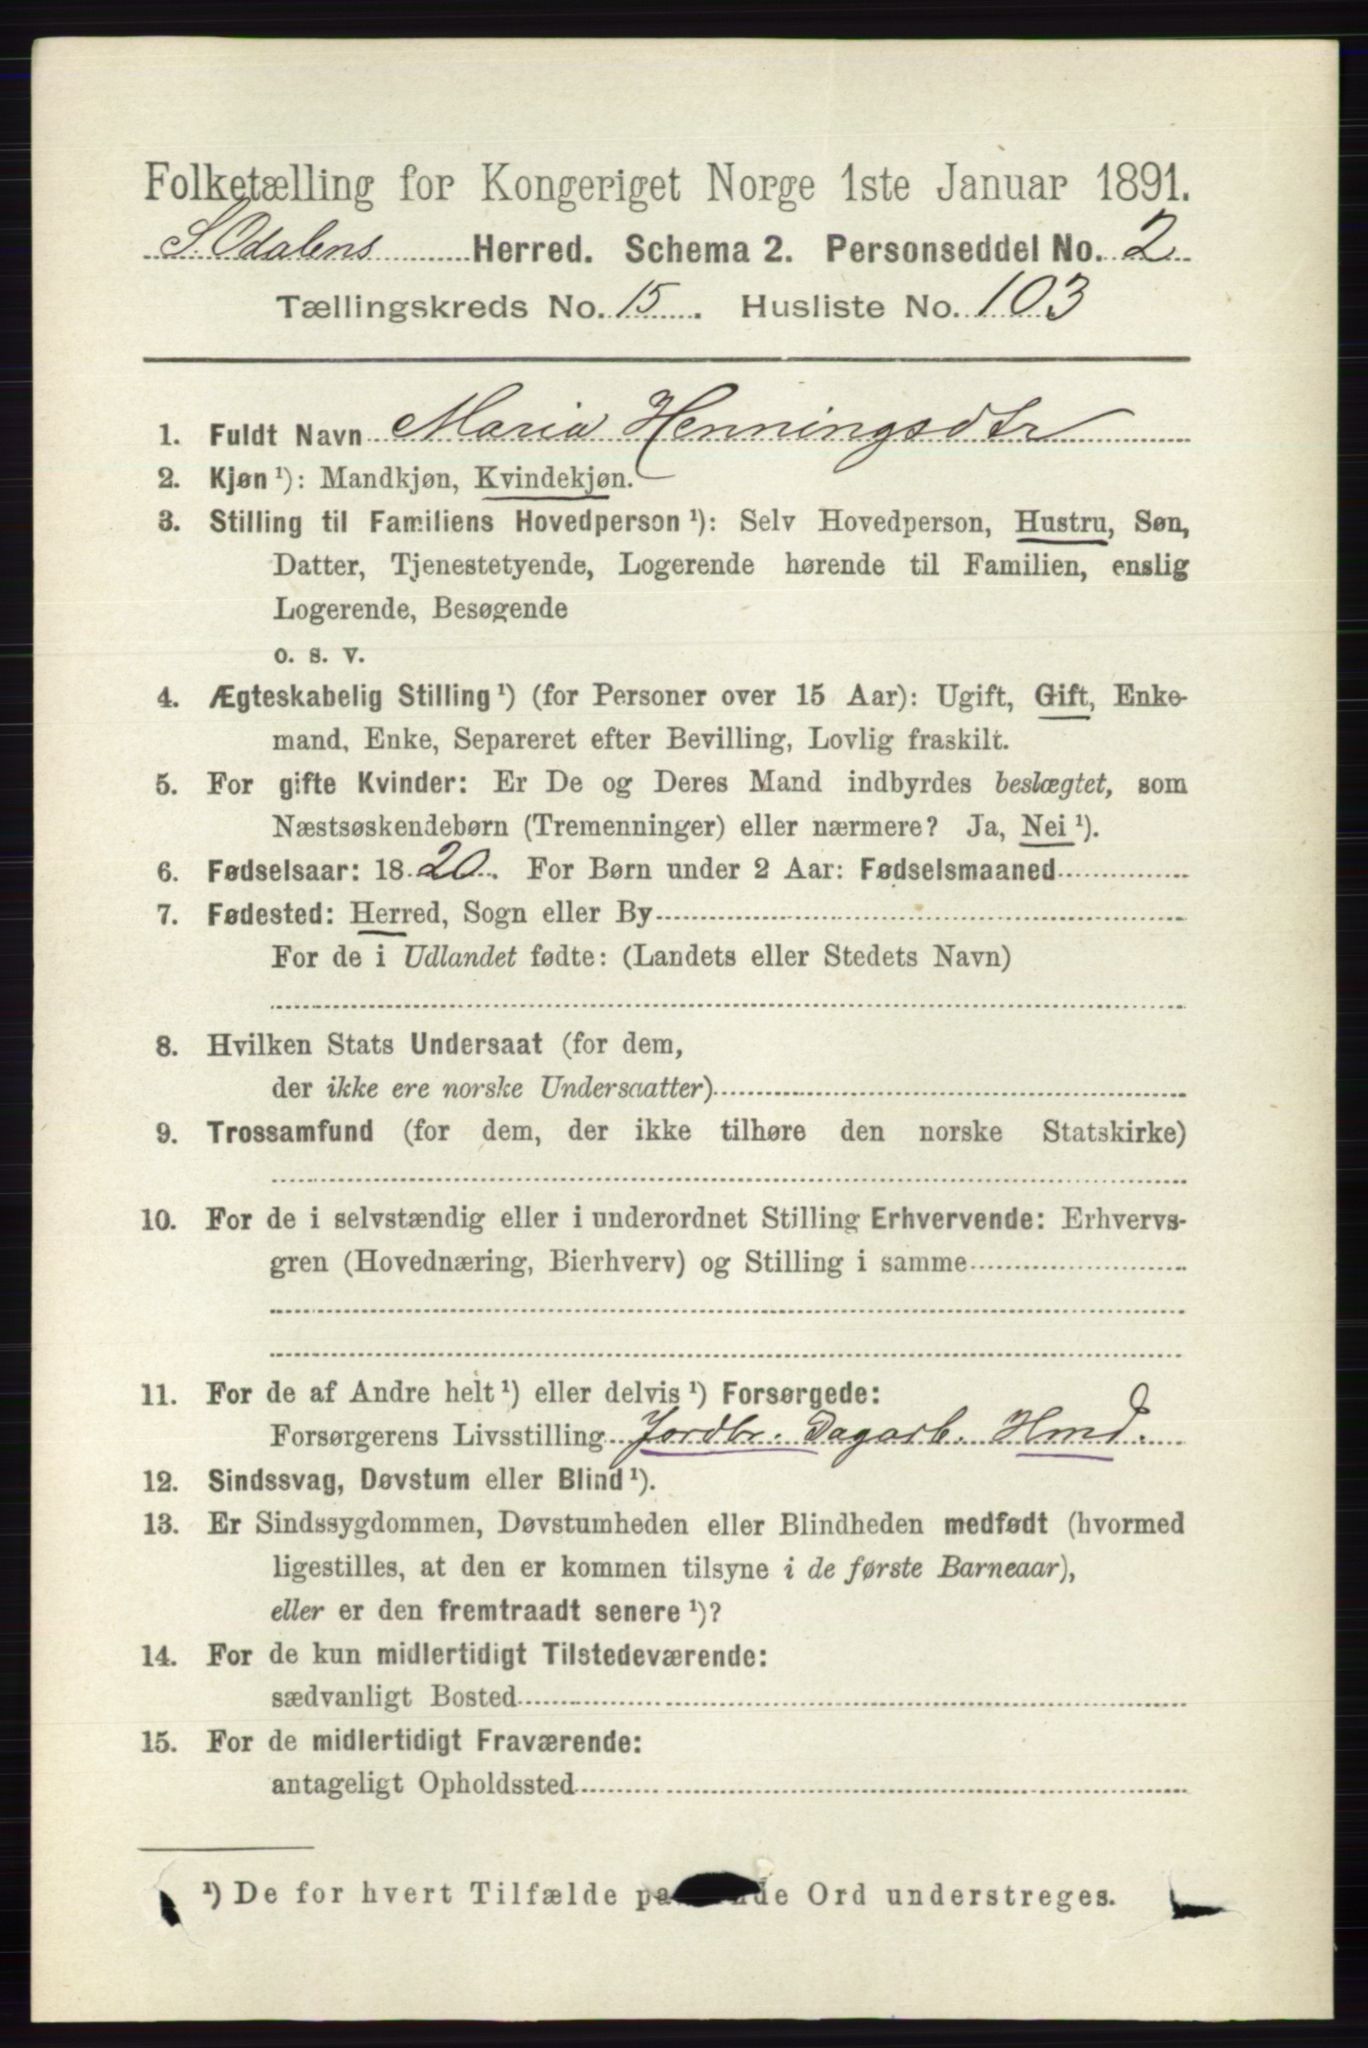 Folketælling for Kongeriget Norge 1ste Januar 1891.
S. Odalens Herred. Schema 2. Personseddel No. 2
Tællingskreds No. 15. Husliste No. 103
1. Fuldt Navn Maria Henningsdtr
2. Kjøn ¹): Mandkjøn, Kvindekjøn.
3. Stilling til Familiens Hovedperson ¹): Selv Hovedperson, Hustru, Søn,
Datter, Tjenestetyende, Logerende hørende til Familien, enslig
Logerende, Besøgende
o. s. v.
4. Ægteskabelig Stilling ¹) (for Personer over 15 Aar): Ugift, Gift, Enke-
mand, Enke, Separeret efter Bevilling, Lovlig fraskilt.
5. For gifte Kvinder: Er De og Deres Mand indbyrdes beslægtet, som
Næstsøskendebørn (Tremenninger) eller nærmere? Ja, Nei ¹).
6. Fødselsaar: 1820. For Børn under 2 Aar: Fødselsmaaned
7. Fødested: Herred, Sogn eller By
For de i Udlandet fødte: (Landets eller Stedets Navn)
8. Hvilken Stats Undersaat (for dem,
der ikke ere norske Undersaatter)
9. Trossamfund (for dem, der ikke tilhøre den norske Statskirke)
10. For de i selvstændig eller i underordnet Stilling Erhvervende: Erhvervs-
gren (Hovednæring, Bierhverv) og Stilling i samme
11. For de af Andre helt ¹) eller delvis ¹) Forsørgede:
Forsørgerens Livsstilling Jordbr. Dagarb. Hmd.
12. Sindssvag, Døvstum eller Blind ¹).
13. Er Sindssygdommen, Døvstumheden eller Blindheden medfødt (hvormed
ligestilles, at den er kommen tilsyne i de første Barneaar),
eller er den fremtraadt senere ¹)?
14. For de kun midlertidigt Tilstedeværende:
sædvanligt Bosted
15. For de midlertidigt Fraværende:
antageligt Opholdssted
¹) De for hvert Tilfælde pa nde Ord understreges.